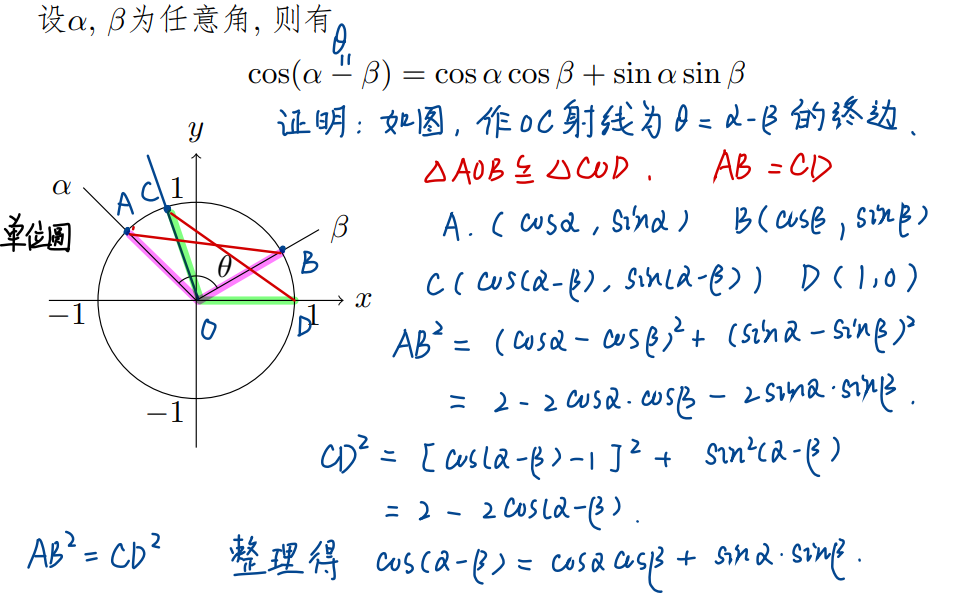 设α, β为任意角, 则有
θ
=
cos(α − β) = cos α cos β + sin α sin β
证明: 如图, 作OC射线为θ=α-β的终边.
△AOB≌△COD. AB=CD
A.(cosα, sinα) B(cosβ, sinβ)
C(cos(α-β), sin(α-β)) D(1,0)
AB²=(cosα-cosβ)²+(sinα-sinβ)²
=2-2cosα·cosβ-2sinα·sinβ.
CD²=[cos(α-β)-1]²+ sin²(α-β)
=2-2cos(α-β).
AB²=CD² 整理得 cos(α-β)=cosαcosβ+sinα·sinβ.
y
α A C 1
单位圆 β
B
θ
−1 O D 1 x
−1